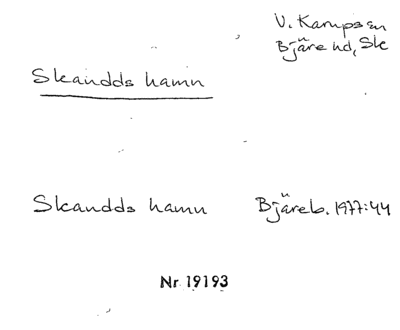 V. Karups sn
Bjäre hd, Sk
Skandds hamn
Skandds hamn Bjäreb. 1977:44
Nr 19193